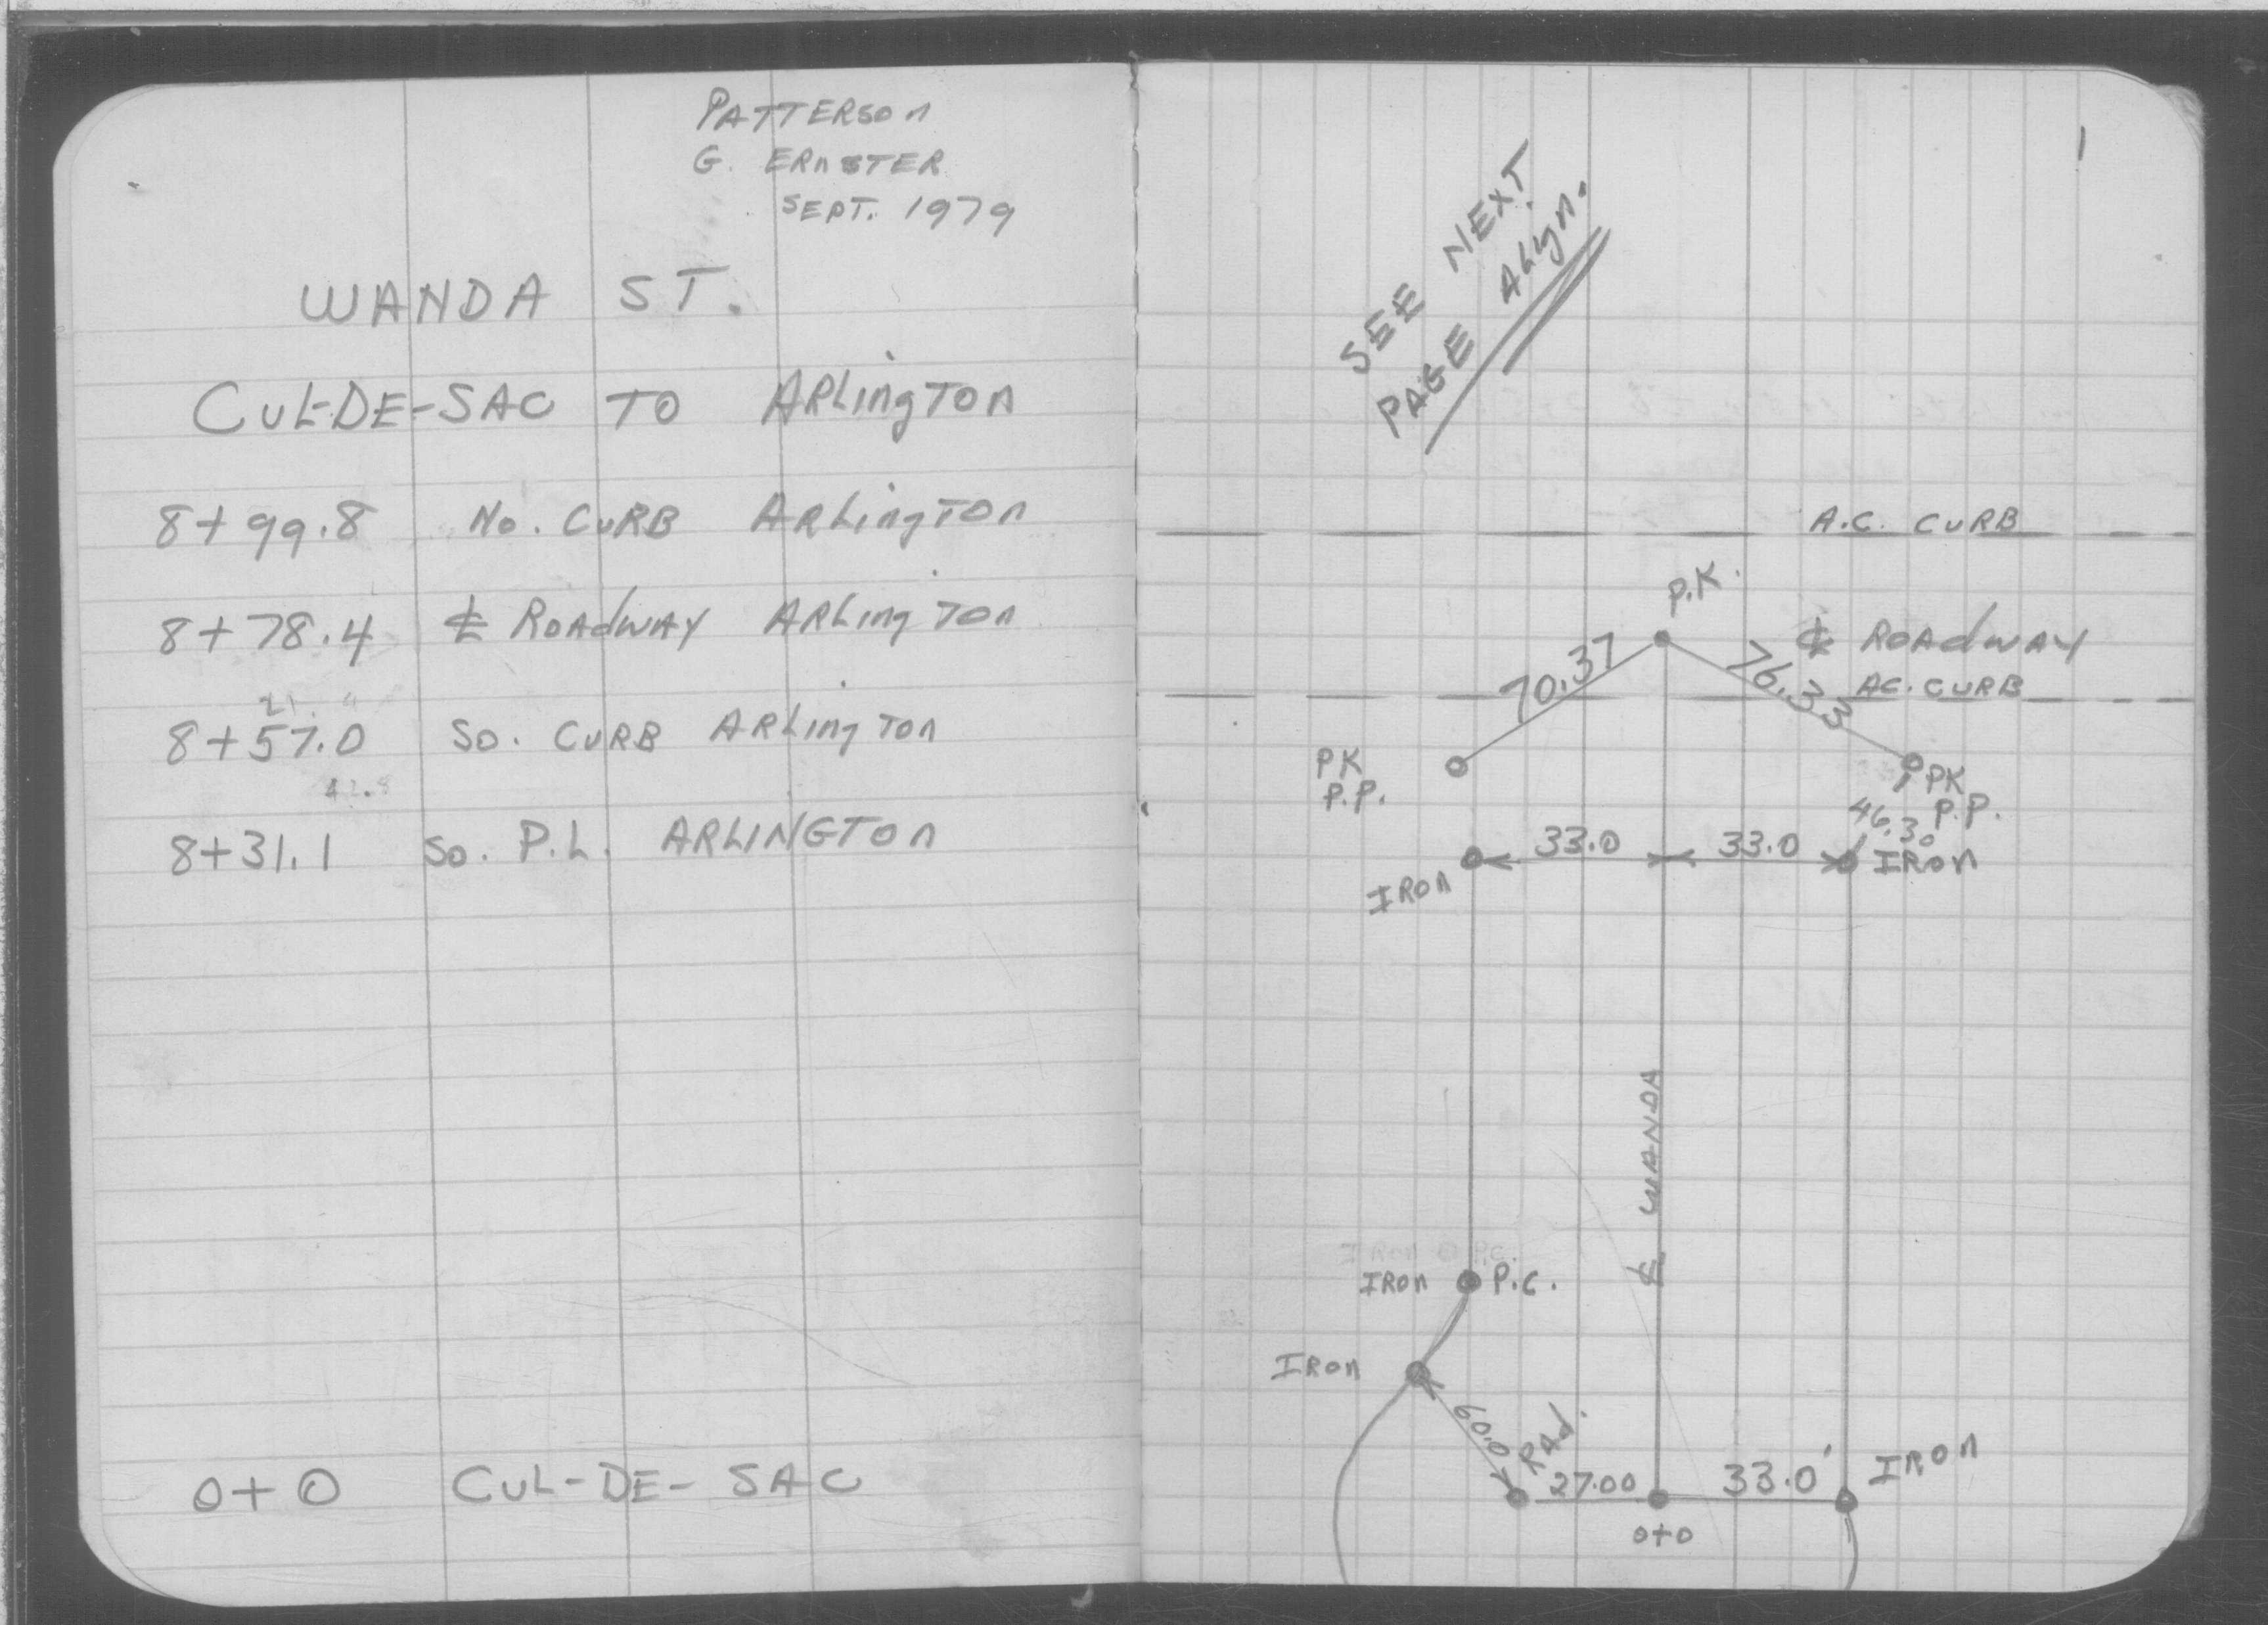 PATTERSON
G. ERNSTER
SEPT. 1979
WANDA ST.
CUL-DE-SAC TO ARLINGTON
8+99.8 No. CURB ARLINGTON
8+78.4 ℄ ROADWAY ARLINGTON
21.4
8+57.0 So. CURB ARLINGTON
42.8
8+31.1 So. P.L. ARLINGTON
0+0 CUL-DE-SAC
1
SEE NEXT
PAGE ALIGN.
A.C. CURB
P.K.
℄ ROADWAY
70.37
76.33
AC. CURB
PK
P.P.
PK
P.P.
46.30
33.0 33.0
IRON
IRON
℄ WANDA
IRON @ P.C.
IRON P.C.
IRON
60.0
RAD.
27.00 33.0'
IRON
0+0